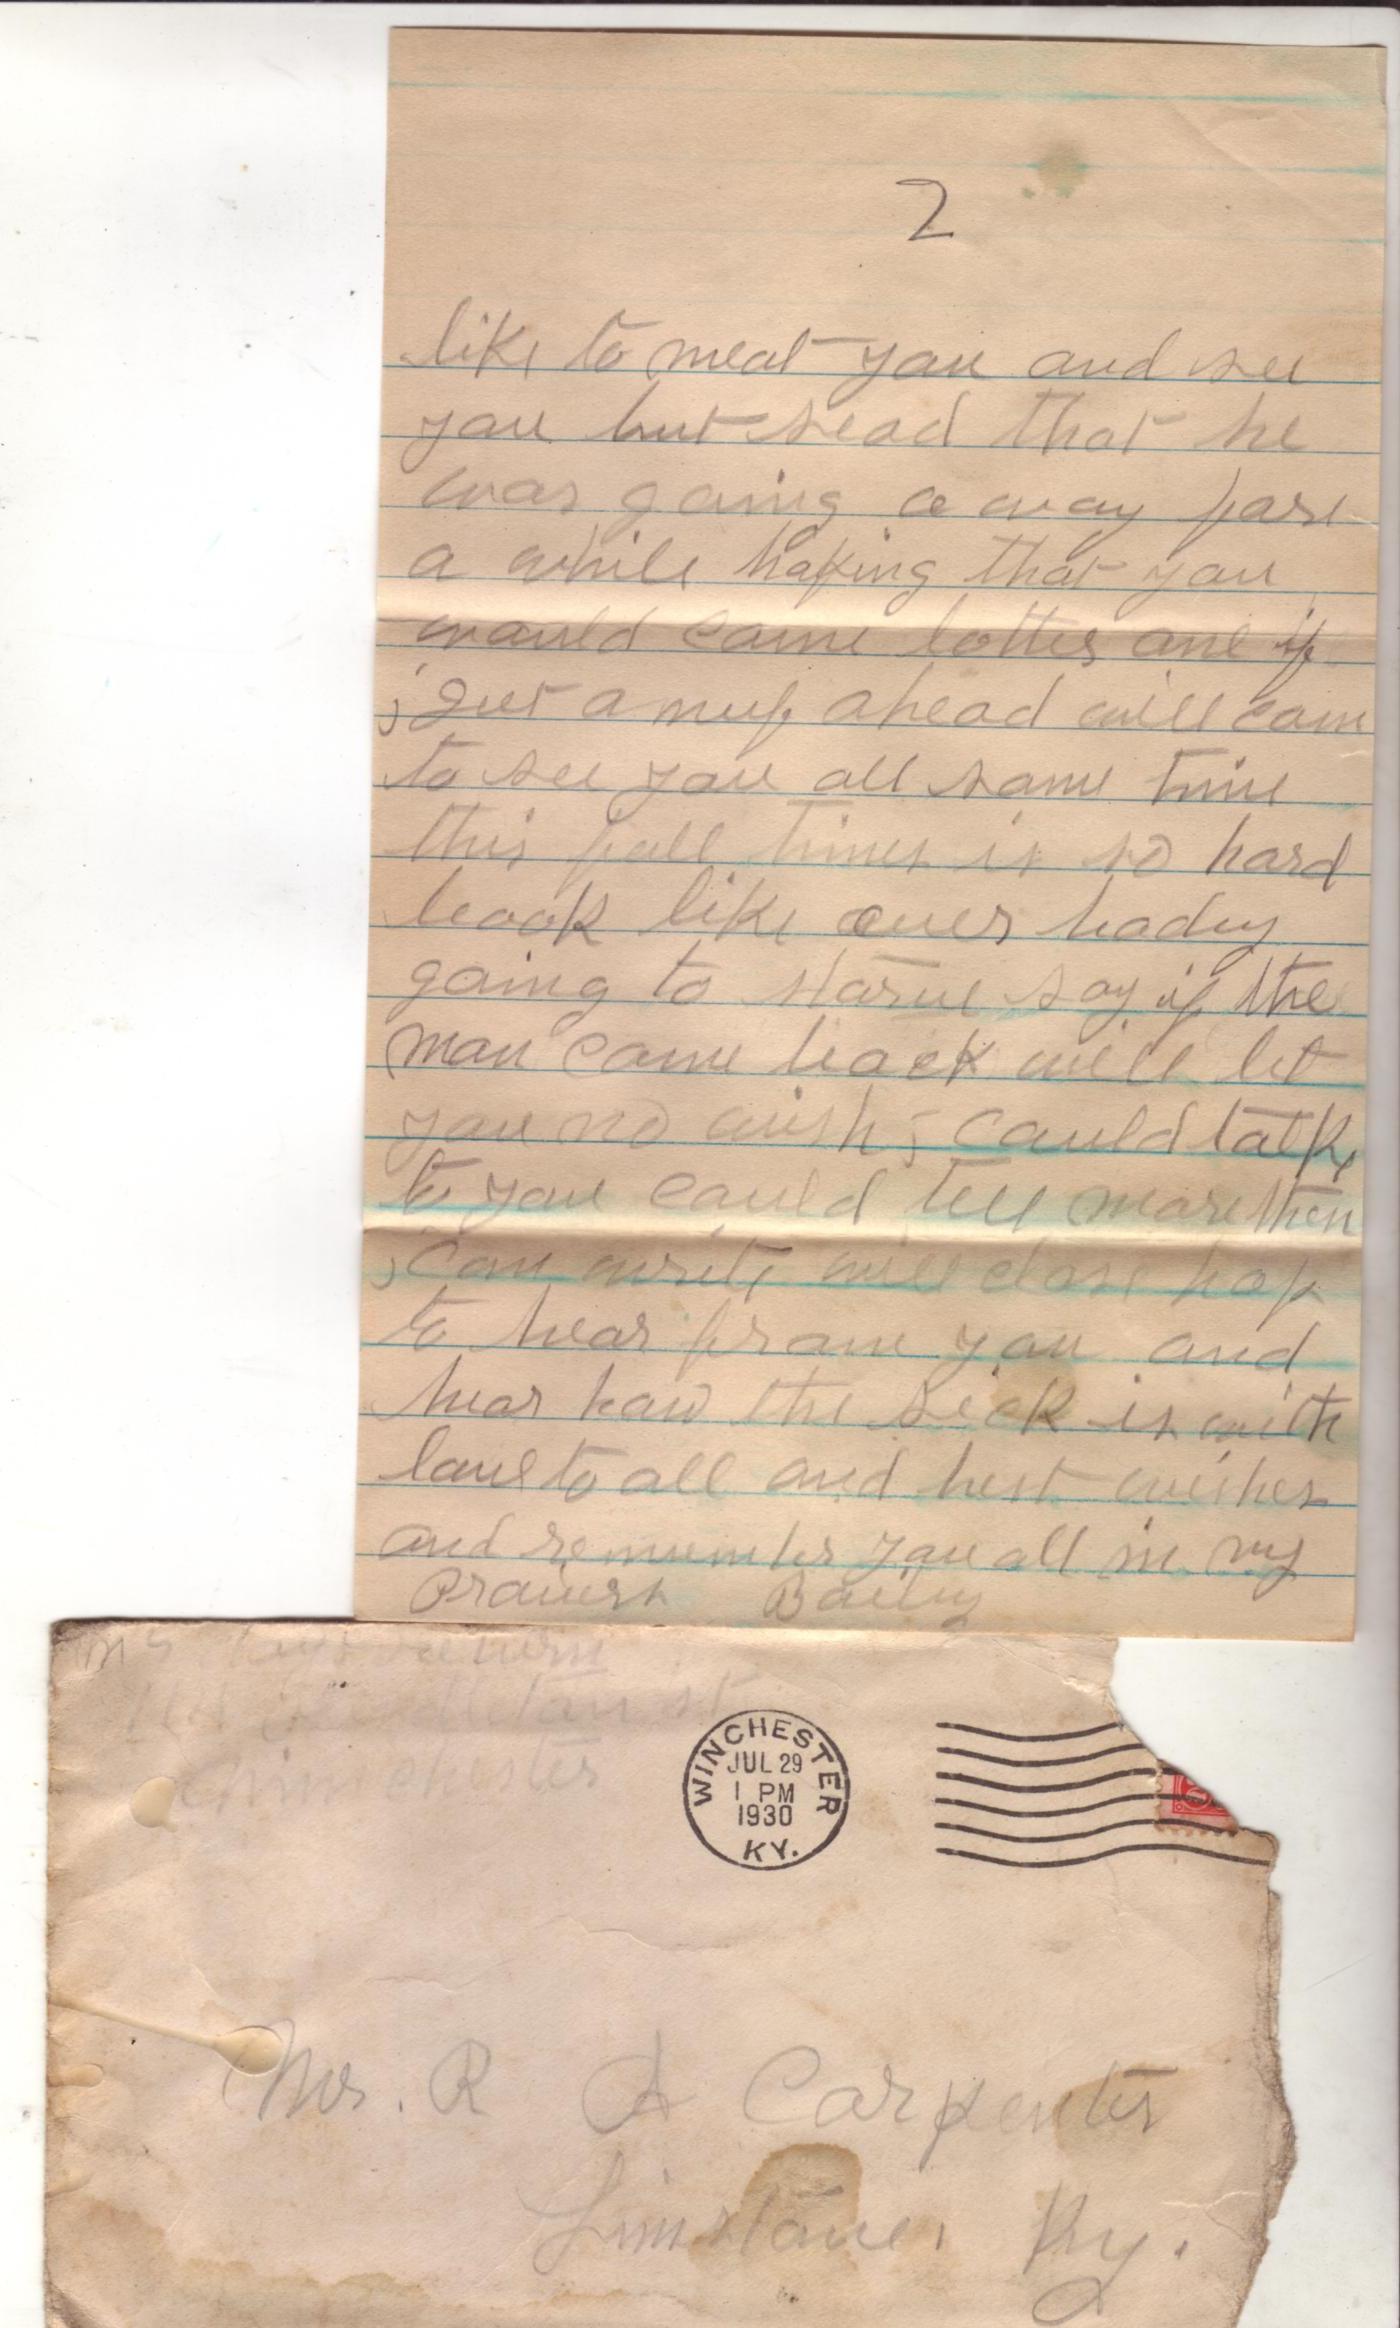 2
like to meat you and see
you but sead that he
was going a way fore
a while hoping that you
would come
i get a nuf ahead will come
to see you all some time
this fall times is so hard
look like ever body
going to starve say if the
man come back will let
you no wish i could talk
to you could tell more then
i can write will close hop
to hear from you and
hear how the sick is with
love to all and best wishes
and remember you all in my
Praiers Bailey
Winchester
WINCHESTER
JUL 29
1 PM
1930
KY.
Mrs. R A Carpenter
Limstone, Ky.